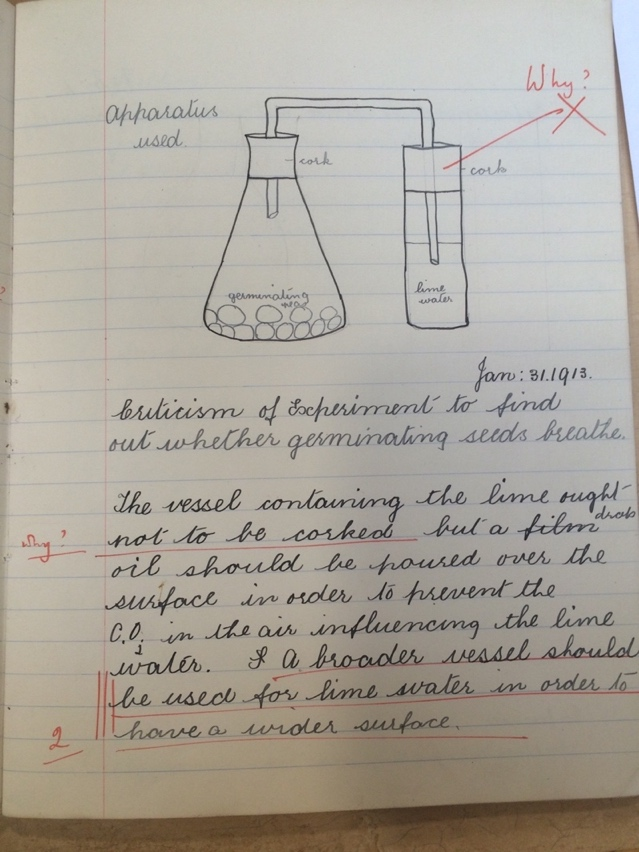 Why?
Apparatus
used.
cork
cork
germinating
lime
water
Jan: 31.1913.
Criticism of Experiment to find
out whether germinating seeds breathe.
The vessel containing the lime ought
Why?
not to be corked but a film drob
oil should be poured over the
surface in order to prevent the
C.O. in the air influencing the lime
water. I A broader vessel should
be used for lime water in order to
have a wider surface.
2